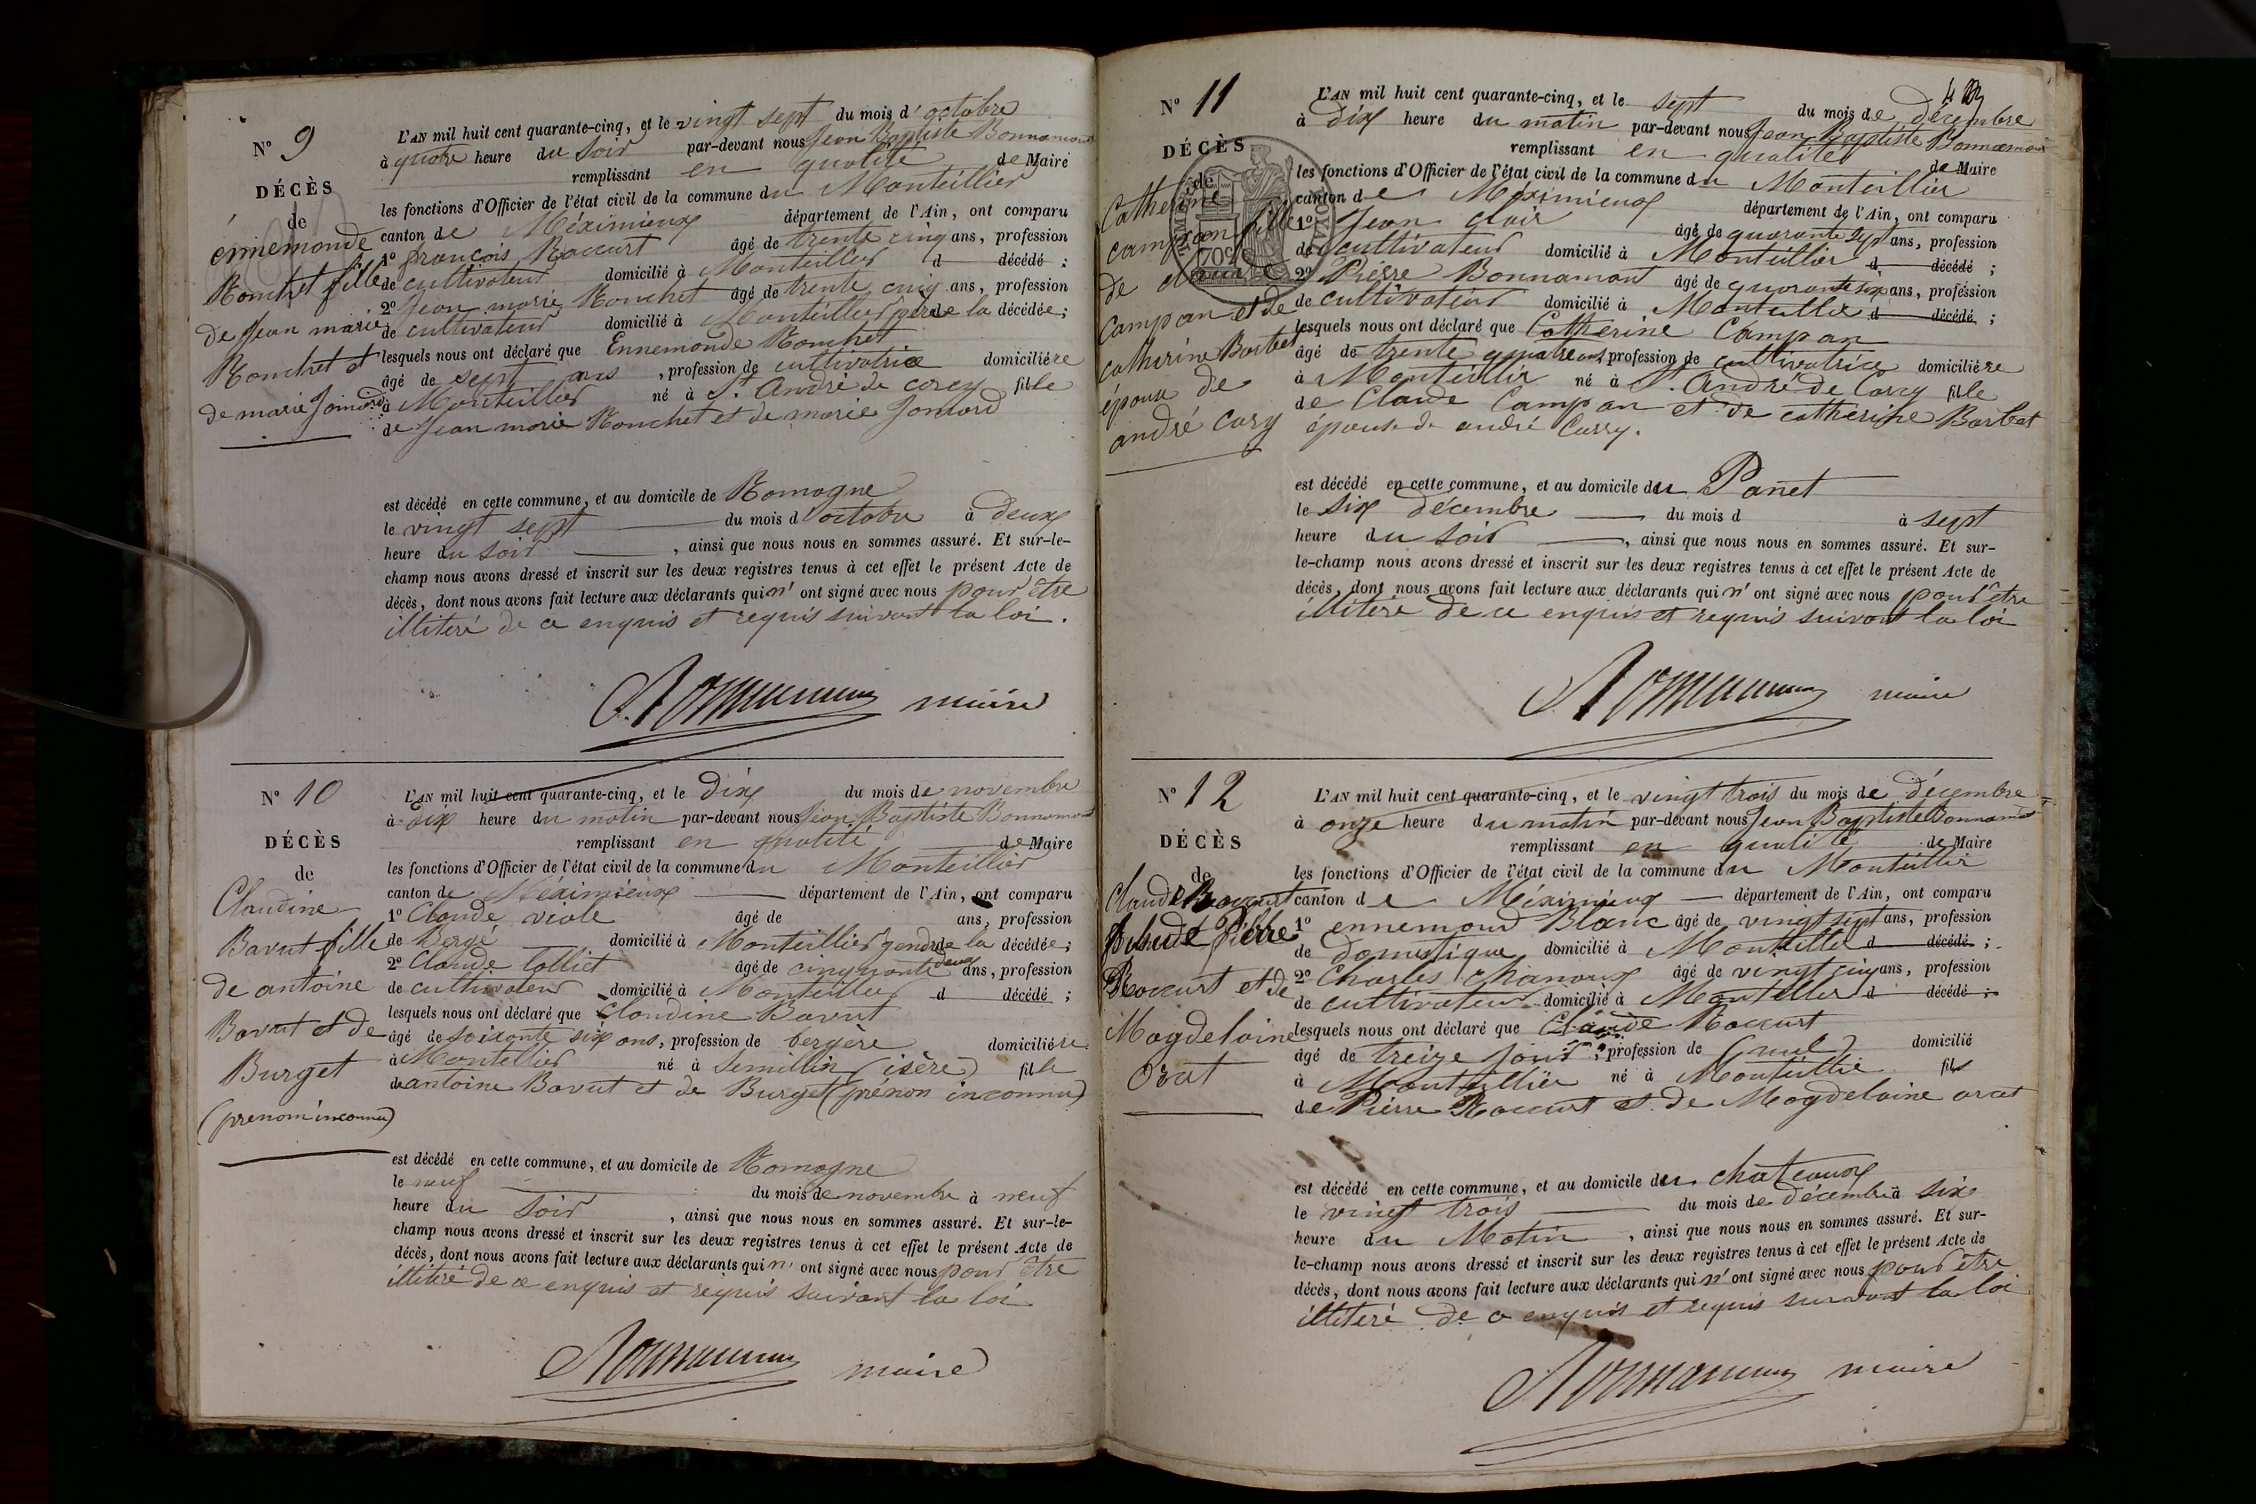 N° 9
DÉCÈS
de
énnemonde
Ronchet fille
de Jean marie
Ronchet et
de marie Jomard
L'AN mil huit cent quarante-cinq, et le vingt sept du mois d'octobre
à quatre heure du soir par-devant nous Jean Baptiste Bonnamour
remplissant en qualité de Maire
les fonctions d'Officier de l'état civil de la commune du Montellier
canton de Méximieux département de l'Ain, ont comparu
1° françois Roccurt âgé de trente cinq ans, profession
de cultivateur domicilié à Montellier d décédé ;
2° Jean marie Ronchet âgé de trente cinq ans, profession
de cultivateur domicilié à Monteillier père de la décédée ;
lesquels nous ont déclaré que Ennemonde Ronchet
âgé de sept ans , profession de cultivatrice domiciliére
à Monteillier né à St. André de corcy fille
de Jean marie Ronchet et de marie Jomard
est décédé en cette commune, et au domicile de Romagne
le vingt sept du mois d octobre à deux
heure du soir , ainsi que nous nous en sommes assuré. Et sur-le-
champ nous avons dressé et inscrit sur les deux registres tenus à cet effet le présent Acte de
décès, dont nous avons fait lecture aux déclarants qui n' ont signé avec nous pour être
illiteré de ce enquis et requis suivant la loi.
maire
N° 10
DÉCÈS
de
Claudine
Bavut fille
de antoine
Bavut et de
Burget
(prenom inconnu)
L'AN mil huit cent quarante-cinq, et le dix du mois de novembre
à dix heure du matin par-devant nous Jean Baptiste Bonnamour
remplissant en qualité de Maire
les fonctions d'Officier de l'état civil de la commune du Monteillier
canton de Méximieux département de l'Ain, ont comparu
1° Claude viole âgé de ans, profession
de Bergé domicilié à Monteillier gendre de la décédée ;
2° Claude Colliet âgé de cinquante deux ans, profession
de cultivateur domicilié à Monteillier d décédé ;
lesquels nous ont déclaré que Claudine Bavut
âgé de soixante six ans, profession de bergère domiciliére
à Montellier né à Semillin (isère) fille
de antoine Bavut et de Burget (prénon inconnu)
est décédé en cette commune, et au domicile de Romagne
le neuf du mois de novembre à neuf
heure du soir , ainsi que nous nous en sommes assuré. Et sur-le-
champ nous avons dressé et inscrit sur les deux registres tenus à cet effet le présent Acte de
décès, dont nous avons fait lecture aux déclarants qui n' ont signé avec nous pour être
illitéré de ce enquis et requis suivant la loi
maire
N° 11
DÉCÈS
de
Catherine
campan fille
de claude
Campan et de
catherine Barbet
épouse de
andré cary
L'AN mil huit cent quarante-cinq, et le sept du mois de décembre
à dix heure du matin par-devant nous Jean Baptiste Bonnamour
remplissant en qualité de Maire
les fonctions d'Officier de l'état civil de la commune du Monteillier
canton de Méximieux département de l'Ain, ont comparu
1° Jean clair âgé de quarante sept ans, profession
de cultivateur domicilié à Monteillier d décédé ;
2° Pierre Bonnamour âgé de quarante six ans, profession
de cultivateur domicilié à Monteillie d décédé ;
lesquels nous ont déclaré que Catherine Campan
âgé de trente quatre ans, profession de cultivatrice domiciliére
à Monteillir né à St. André de Corcy fille
de Claude Campan et de catherine Barbet
épouse de andré Carry.
est décédé en cette commune, et au domicile du Panet
le six décembre du mois d à sept
heure du soir , ainsi que nous nous en sommes assuré. Et sur-
le-champ nous avons dressé et inscrit sur les deux registres tenus à cet effet le présent Acte de
décès, dont nous avons fait lecture aux déclarants qui n' ont signé avec nous pour être
illiteré de ce enquis et requis suivant la loi
maire
N° 12
DÉCÈS
de
Claude Roccurt
fils de Pièrre
Roccurt et de
Magdelaine
Orat
L'AN mil huit cent quarante-cinq, et le vingt trois du mois de décembre
à onze heure du matin par-devant nous Jean Baptiste Bonnamour
remplissant en qualité de Maire
les fonctions d'Officier de l'état civil de la commune du Monteillir
canton de Méximieux département de l'Ain, ont comparu
1° ennemond Blanc âgé de vingt sept ans, profession
de domestique domicilié à Monteillie d décédé ;
2° Charles chanoux âgé de vingt cinq ans, profession
de cultivateur domicilié à Monteller d décédé ;
lesquels nous ont déclaré que Claude Roccurt
âgé de treize jour , profession de (nul) domicilié
à Monteillier né à Monteillie fils
de Pièrre Roccurt et de Magdelaine orat
est décédé en cette commune, et au domicile du chateaux
le vingt trois du mois de décembre à six
heure du Matin , ainsi que nous nous en sommes assuré. Et sur-
le-champ nous avons dressé et inscrit sur les deux registres tenus à cet effet le présent Acte de
décès, dont nous avons fait lecture aux déclarants qui n' ont signé avec nous pour être
illiteré de ce enquis et requis suivant la loi
maire